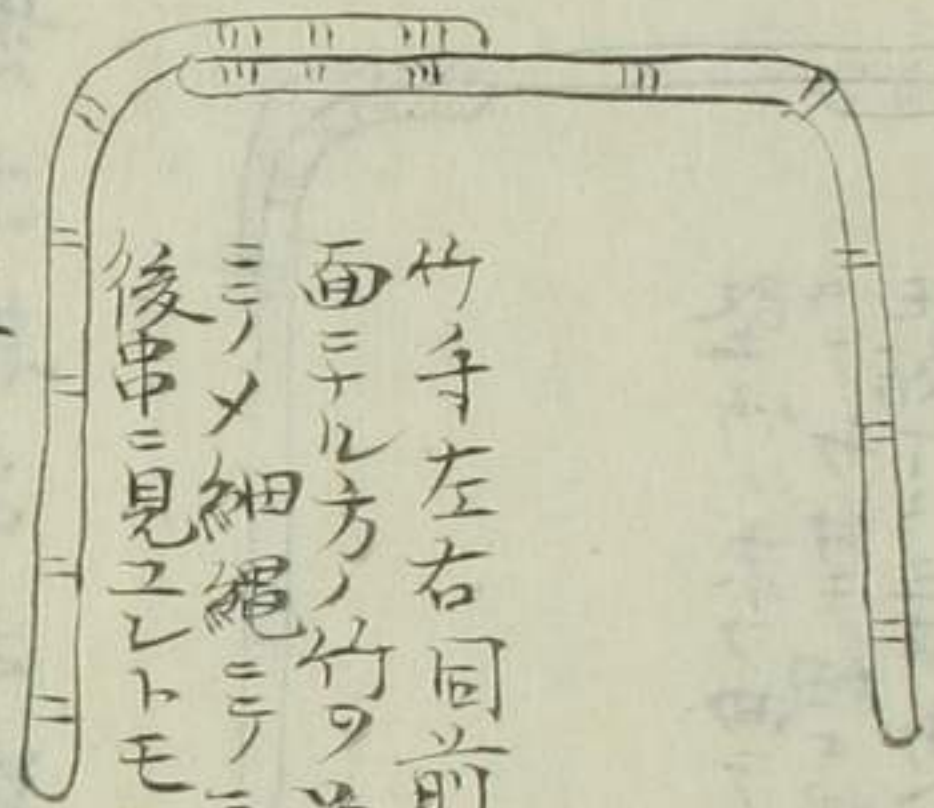 竹手左右同前
面ニナル方ノ竹ヲ
ニシメ細縄ニテ
後串ニ見ユレトモ